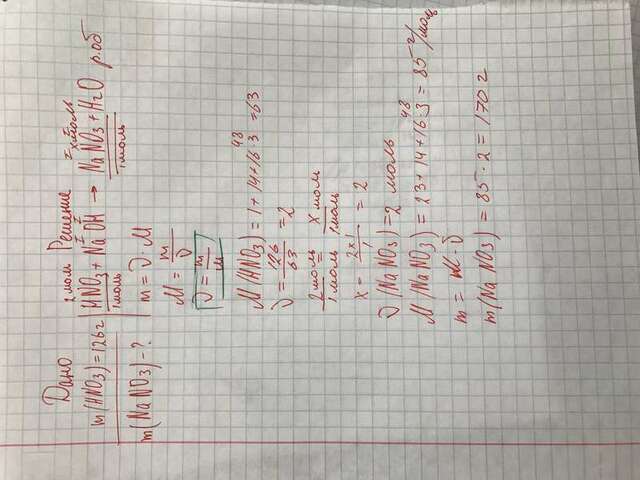 Дано
m(HNO3)=126г
m(NaNO3)-?
Решение
2 моль х моль
HNO3 + NaOH → NaNO3 + H2O р.об
1 моль 1 моль
m = ν · M
M = m/ν
ν = m/M
M(HNO3) = 1+14+16·3 = 63
48
ν = 126/63 = 2
2 моль/1 моль = х моль/1 моль
x = 2х1/1 = 2
ν(NaNO3) = 2 моль
M(NaNO3) = 23+14+16·3 = 85 г/моль
48
m = M · ν
m(NaNO3) = 85 · 2 = 170 г